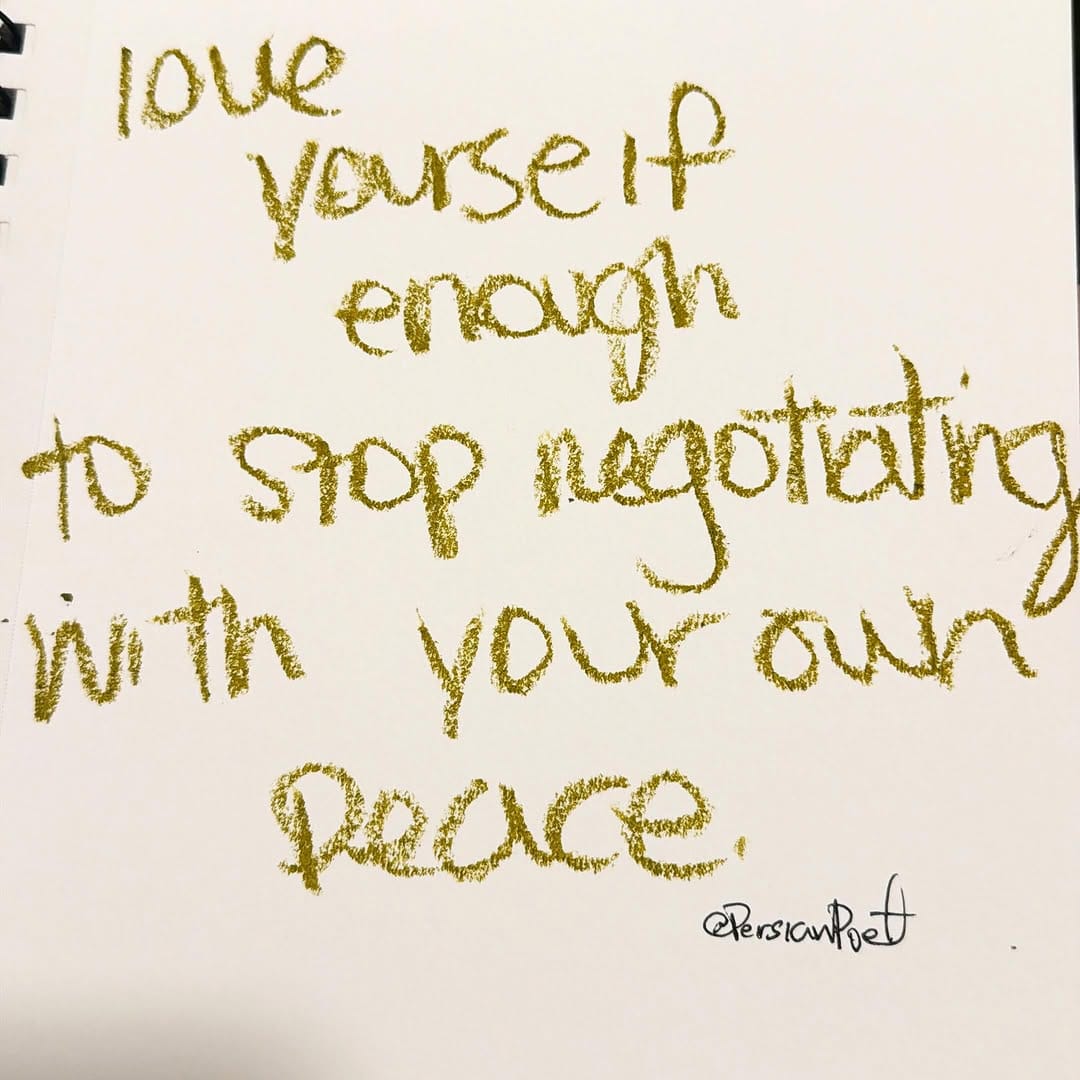 love
yourself
enough
to stop negotiating
with your own
peace.
@PersianPoet